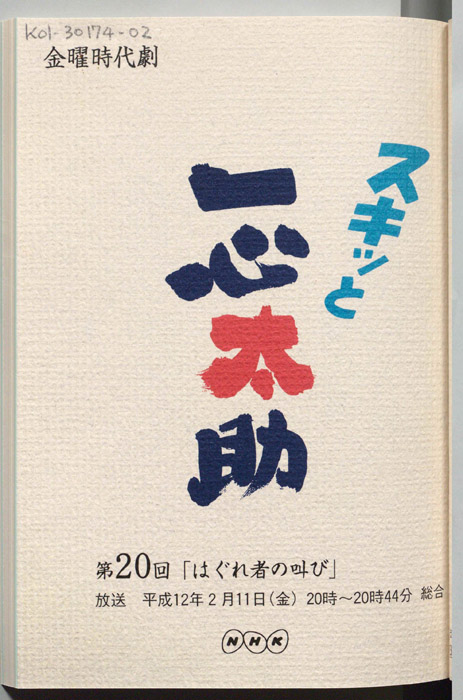 Kol-30174-02
金曜時代劇
スキッと
一心太助
第20回「はぐれ者の叫び」
放送　平成12年2月11日(金)　20時〜20時44分　総合
NHK